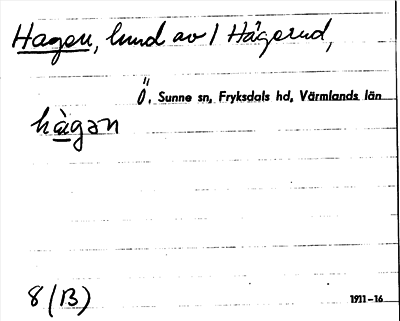 Hagen, lund av 1 Hågerud,
Ö, Sunne sn, Fryksdals hd, Värmlands län
hàgən
8 (B)
1911-16